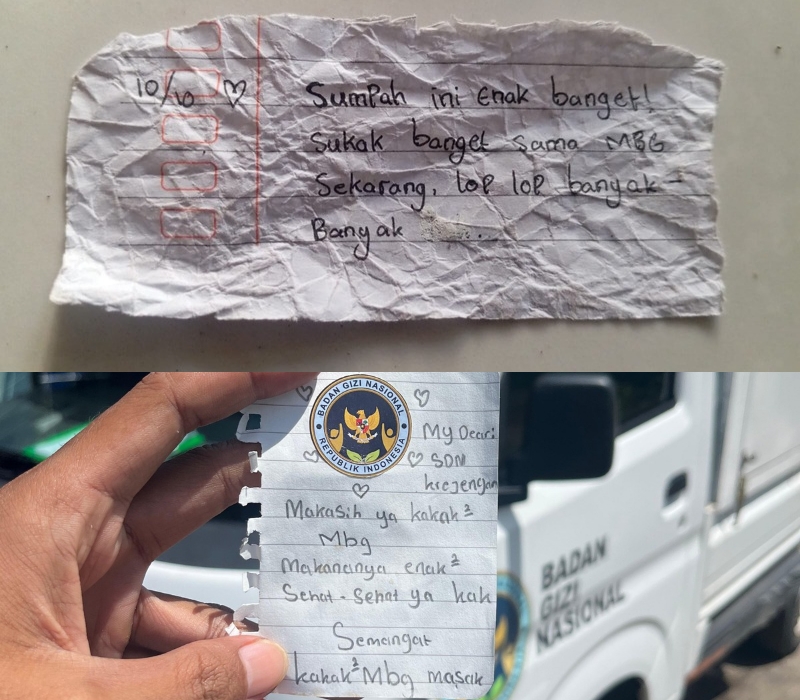 10/10 ♡
Sumpah ini enak banget!
Sukak banget sama MBG
Sekarang, lop lop banyak-
Banyak
BADAN GIZI NASIONAL
REPUBLIK INDONESIA
My Dear
SDN
krejengan
Makasih ya kakak²
Mbg
Makananya enak²
Sehat-Sehat ya kak
Semangat
kakak² Mbg masak
BADAN
GIZI
NASIONAL